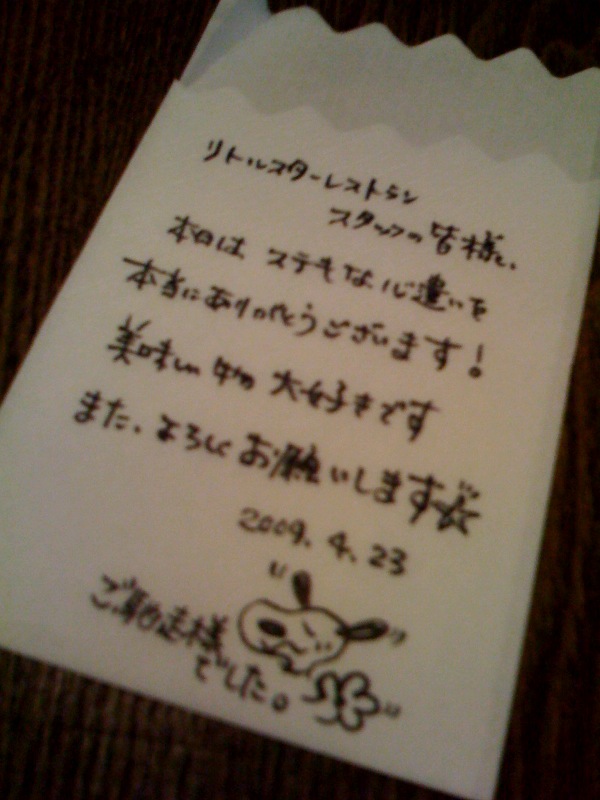 リトルスターレストラン
スタッフの皆様へ、
本日は ステキな心遣いを
本当にありがとうございます!
美味しい物 大好きです
また、よろしくお願いします☆
2009. 4. 23
ご馳走様
でした。